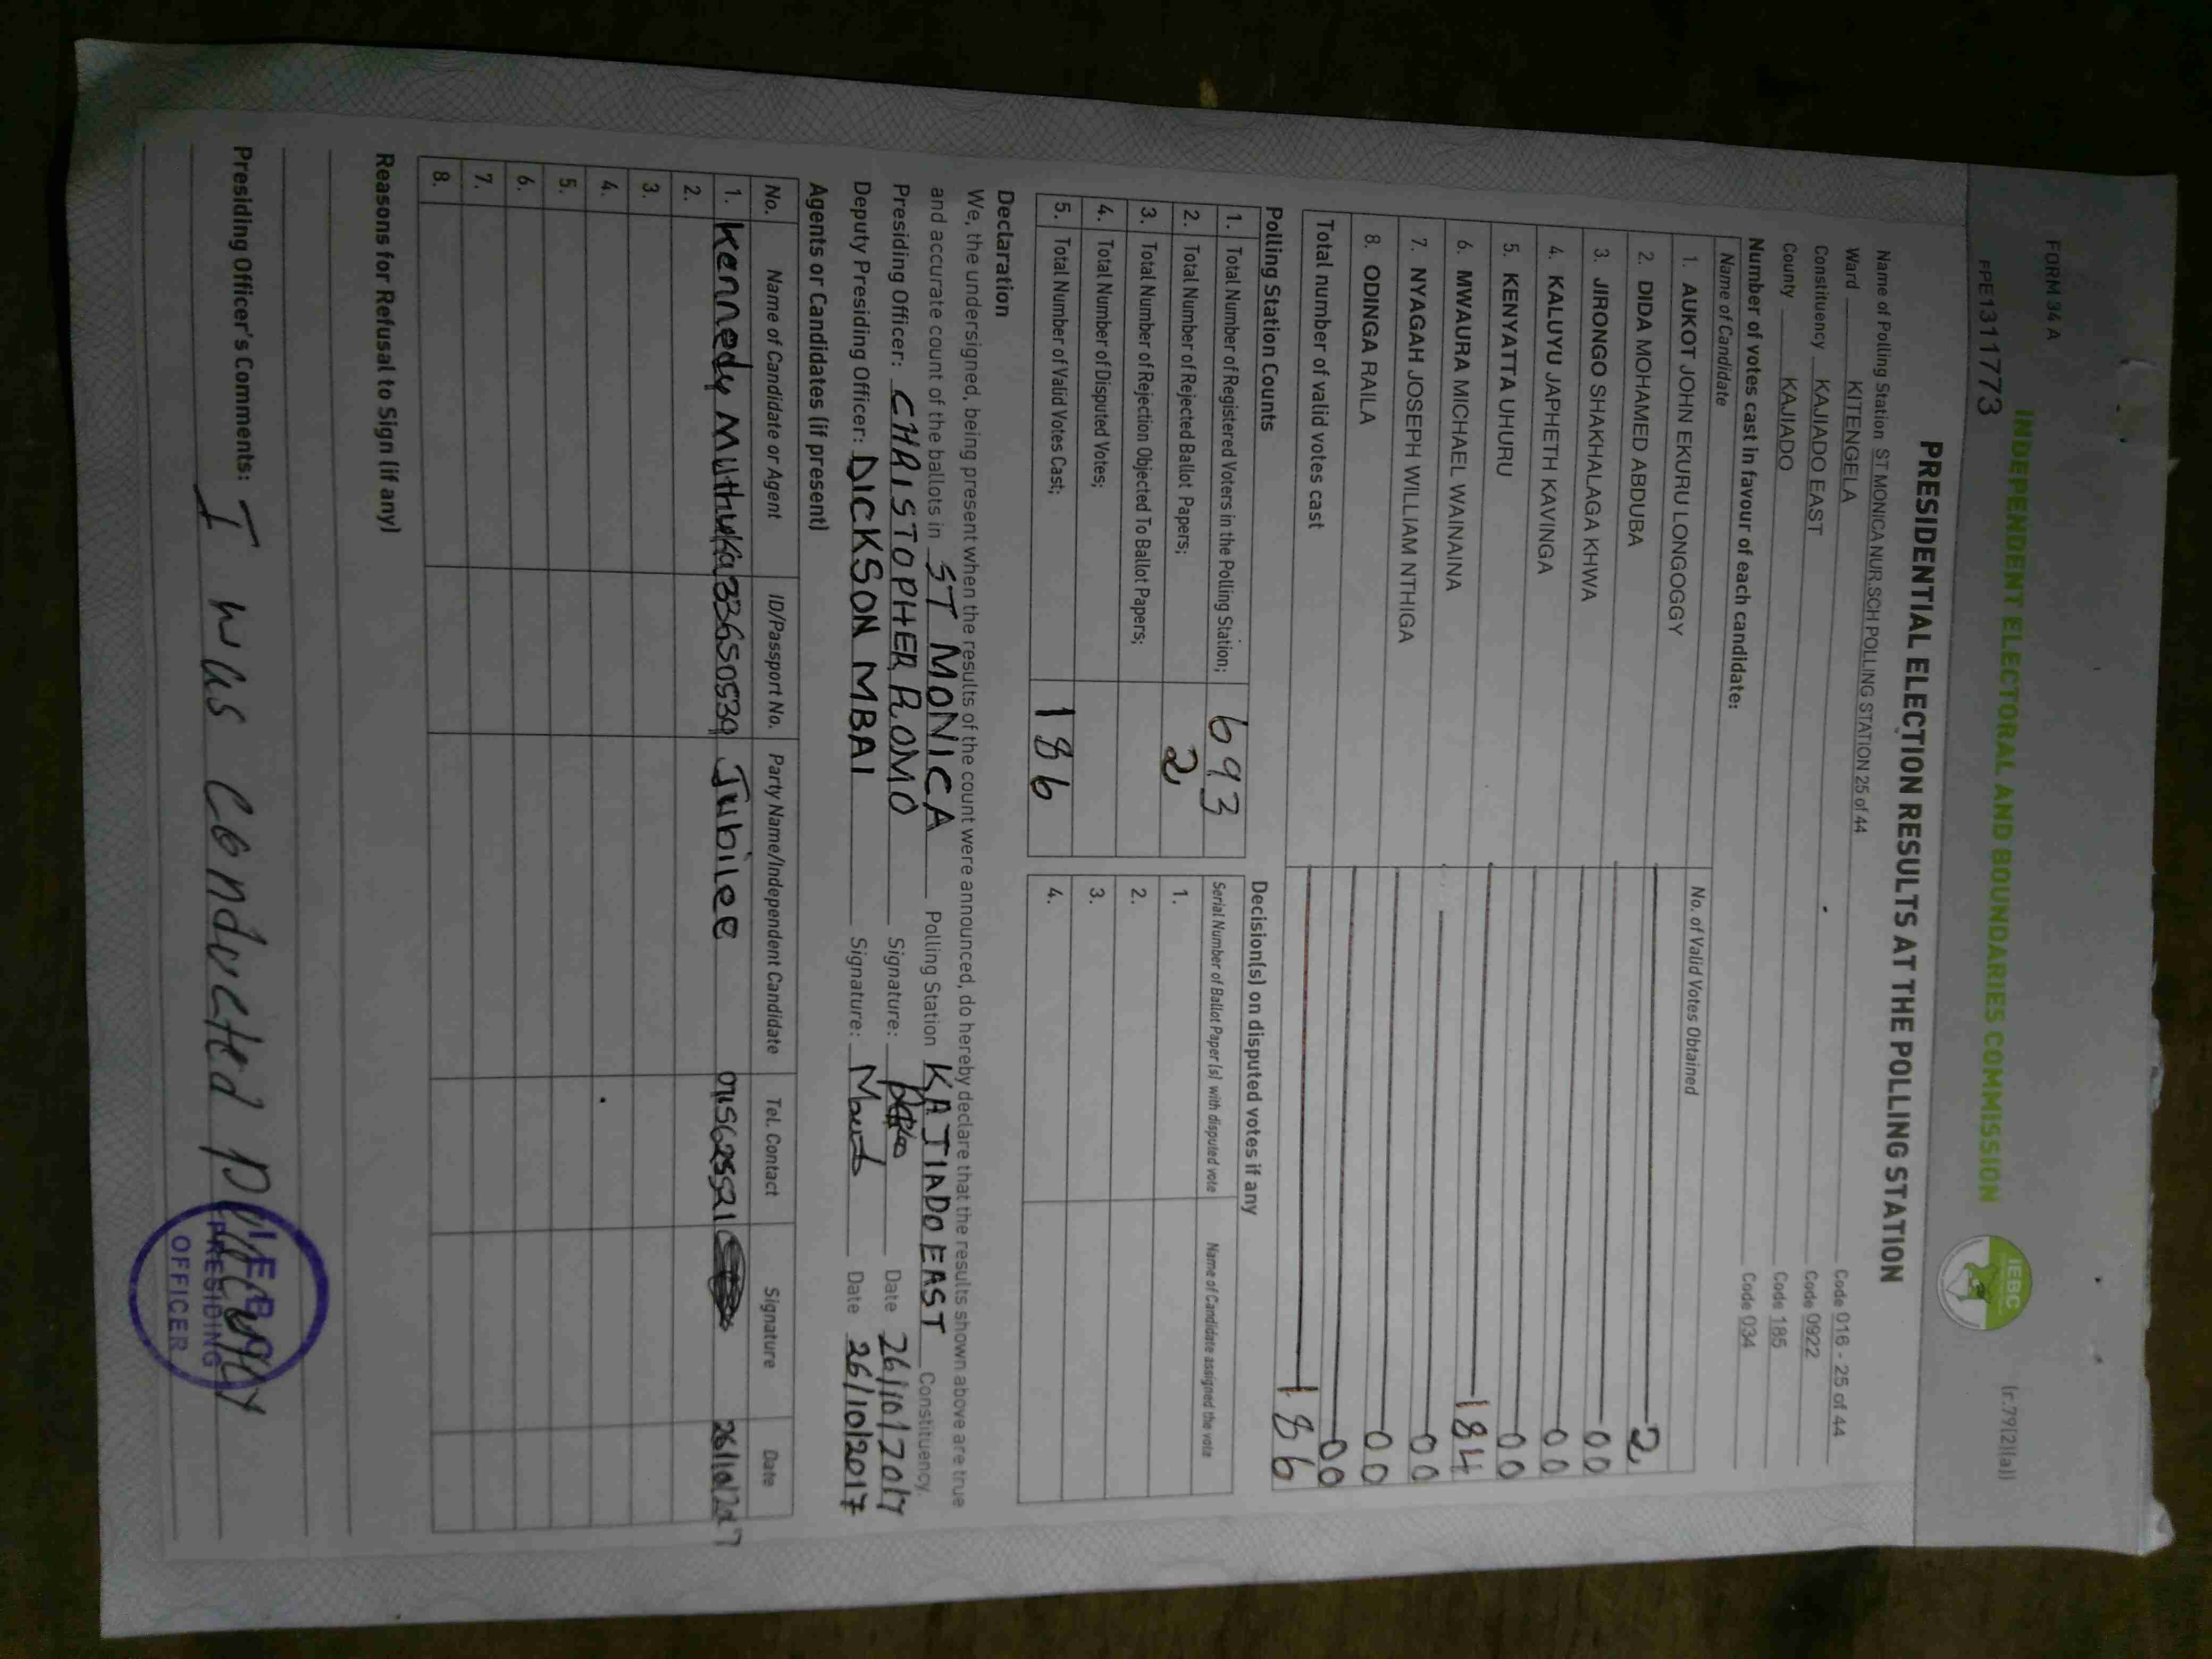 FORM 34 A
(r.79(2)(a))
INDEPENDENT ELECTORAL AND BOUNDARIES COMMISSION
IEBC
FPE1311773
PRESIDENTIAL ELECTION RESULTS AT THE POLLING STATION
Name of Polling Station ST MONICA NUR.SCH POLLING STATION 25 of 44 Code 016 - 25 of 44
Ward KITENGELA Code 0922
Constituency KAJIADO EAST Code 185
County KAJIADO Code 034
Number of votes cast in favour of each candidate:
Name of Candidate No. of Valid Votes Obtained
1. AUKOT JOHN EKURU LONGOGGY 2
2. DIDA MOHAMED ABDUBA 00
3. JIRONGO SHAKHALAGA KHWA 00
4. KALUYU JAPHETH KAVINGA 00
5. KENYATTA UHURU 184
6. MWAURA MICHAEL WAINAINA 00
7. NYAGAH JOSEPH WILLIAM NTHIGA 00
8. ODINGA RAILA 00
Total number of valid votes cast 186
Polling Station Counts
1. Total Number of Registered Voters in the Polling Station; 693
2. Total Number of Rejected Ballot Papers; 2
3. Total Number of Rejection Objected To Ballot Papers;
4. Total Number of Disputed Votes;
5. Total Number of Valid Votes Cast; 186
Decision(s) on disputed votes if any
Serial Number of Ballot Paper (s) with disputed vote Name of Candidate assigned the vote
1.
2.
3.
4.
Declaration
We, the undersigned, being present when the results of the count were announced, do hereby declare that the results shown above are true
and accurate count of the ballots in ST MONICA Polling Station KAJIADO EAST Constituency.
Presiding Officer: CHRISTOPHER ROMO Signature: Date 26/10/2017
Deputy Presiding Officer: DICKSON MBAI Signature: Date 26/10/2017
Agents or Candidates (if present)
No. Name of Candidate or Agent ID/Passport No. Party Name/Independent Candidate Tel. Contact Signature Date
1. Kennedy Muthuka Jubilee 26/10/2017
2.
3.
4.
5.
6.
7.
8.
Reasons for Refusal to Sign (if any)
Presiding Officer's Comments: I was conducted
IEBC
PRESIDING
OFFICER